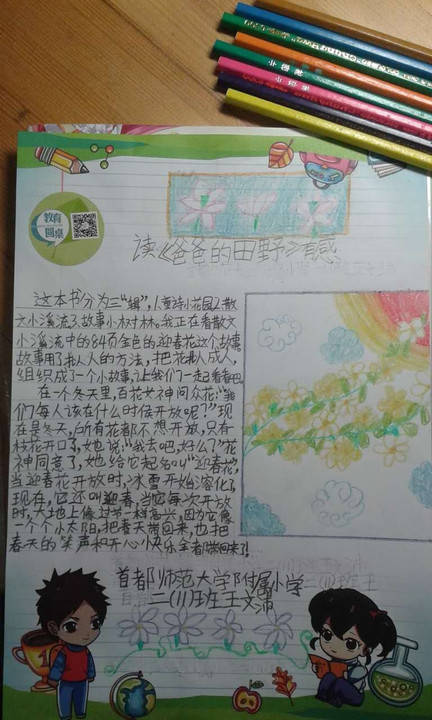 教育
圆桌
读《爸爸的田野》有感
这本书分为三“辑”,1.童诗小花园2.散
文小溪流3.故事小树林。我正在看散文
小溪流中的84页金色的迎春花这个故事。
故事用了拟人的方法,把花拟人成人,
组织成了一个小故事,让我们一起看看吧。
在一个冬天里,百花女神问众花:“我
们每人该在什么时候开放呢?”现
在是冬天,所有花都不想开放,只有
枝花开口了,她说:“我去吧,好么?”花
神同意了,她给它起名叫“迎春花”,
当迎春花开放时,冰雪开始溶化了,
现在,它还叫迎春,当它每次开放
时,大地上像过节一样高兴,因为它像
一个个小太阳,把春天带回来,也把
春天的笑声和开心快乐全都带回来了!
首都师范大学附属小学
二(11)班王文沛